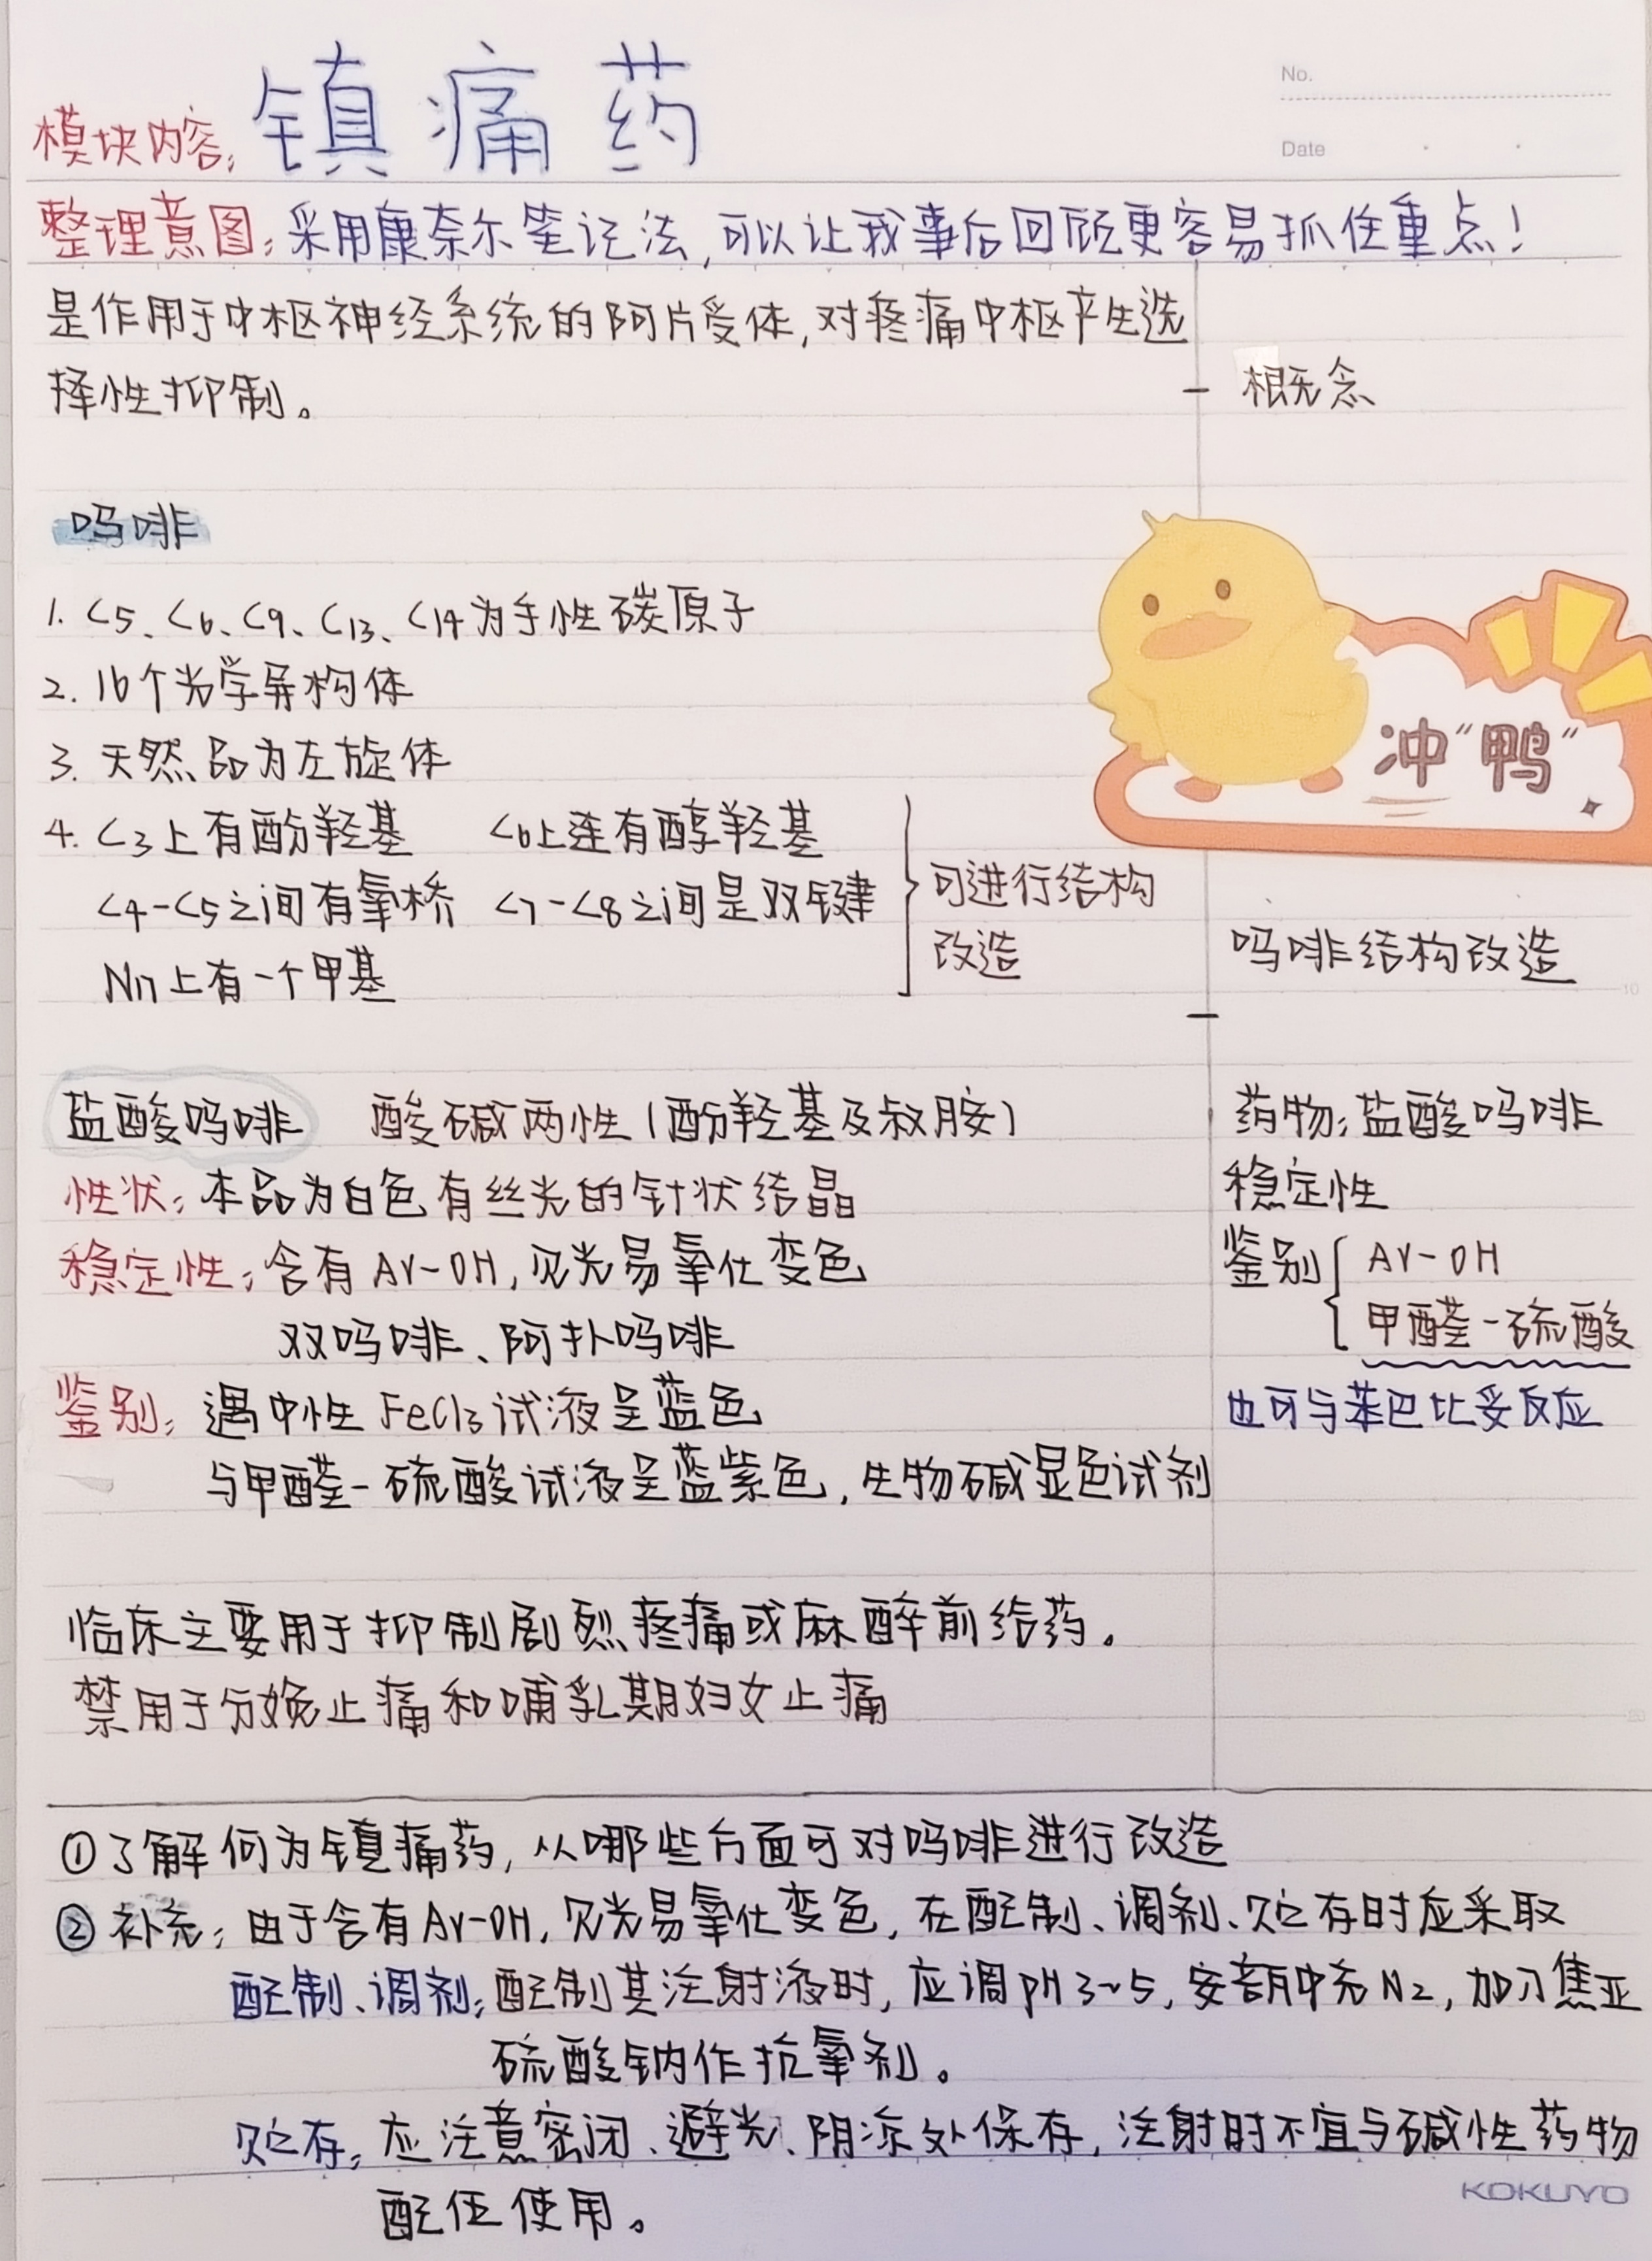 No.
模块内容: 镇痛药
Date
整理意图: 采用康奈尔笔记法,可以让我事后回顾更容易抓住重点!
是作用于中枢神经系统的阿片受体,对疼痛中枢产生选
择性抑制。
概念
吗啡
1. C5、C6、C9、C13、C14为手性碳原子
2. 16个光学异构体
3. 天然品为左旋体
冲"鸭"
4. C3上有酚羟基 C6上连有醇羟基
C4-C5之间有氧桥 C7-C8之间是双键
N17上有一个甲基
可进行结构
改造
吗啡结构改造
盐酸吗啡 酸碱两性(酚羟基及叔胺)
性状: 本品为白色有丝光的针状结晶
稳定性: 含有Ar-OH,见光易氧化变色
双吗啡、阿扑吗啡
鉴别: 遇中性FeCl3试液呈蓝色
与甲醛-硫酸试液呈蓝紫色,生物碱显色试剂
药物:盐酸吗啡
稳定性
鉴别 Ar-OH
甲醛-硫酸
也可与苯巴比妥反应
临床主要用于抑制剧烈疼痛或麻醉前给药。
禁用于分娩止痛和哺乳期妇女止痛
①了解何为镇痛药,从哪些方面可对吗啡进行改造
②补充: 由于含有Ar-OH,见光易氧化变色,在配制、调剂、贮存时应采取
配制、调剂:配制其注射液时,应调pH3~5,安瓿中充N2,加入焦亚
硫酸钠作抗氧剂。
贮存: 应注意密闭、避光、阴凉处保存,注射时不宜与碱性药物
配伍使用。
KOKUYO